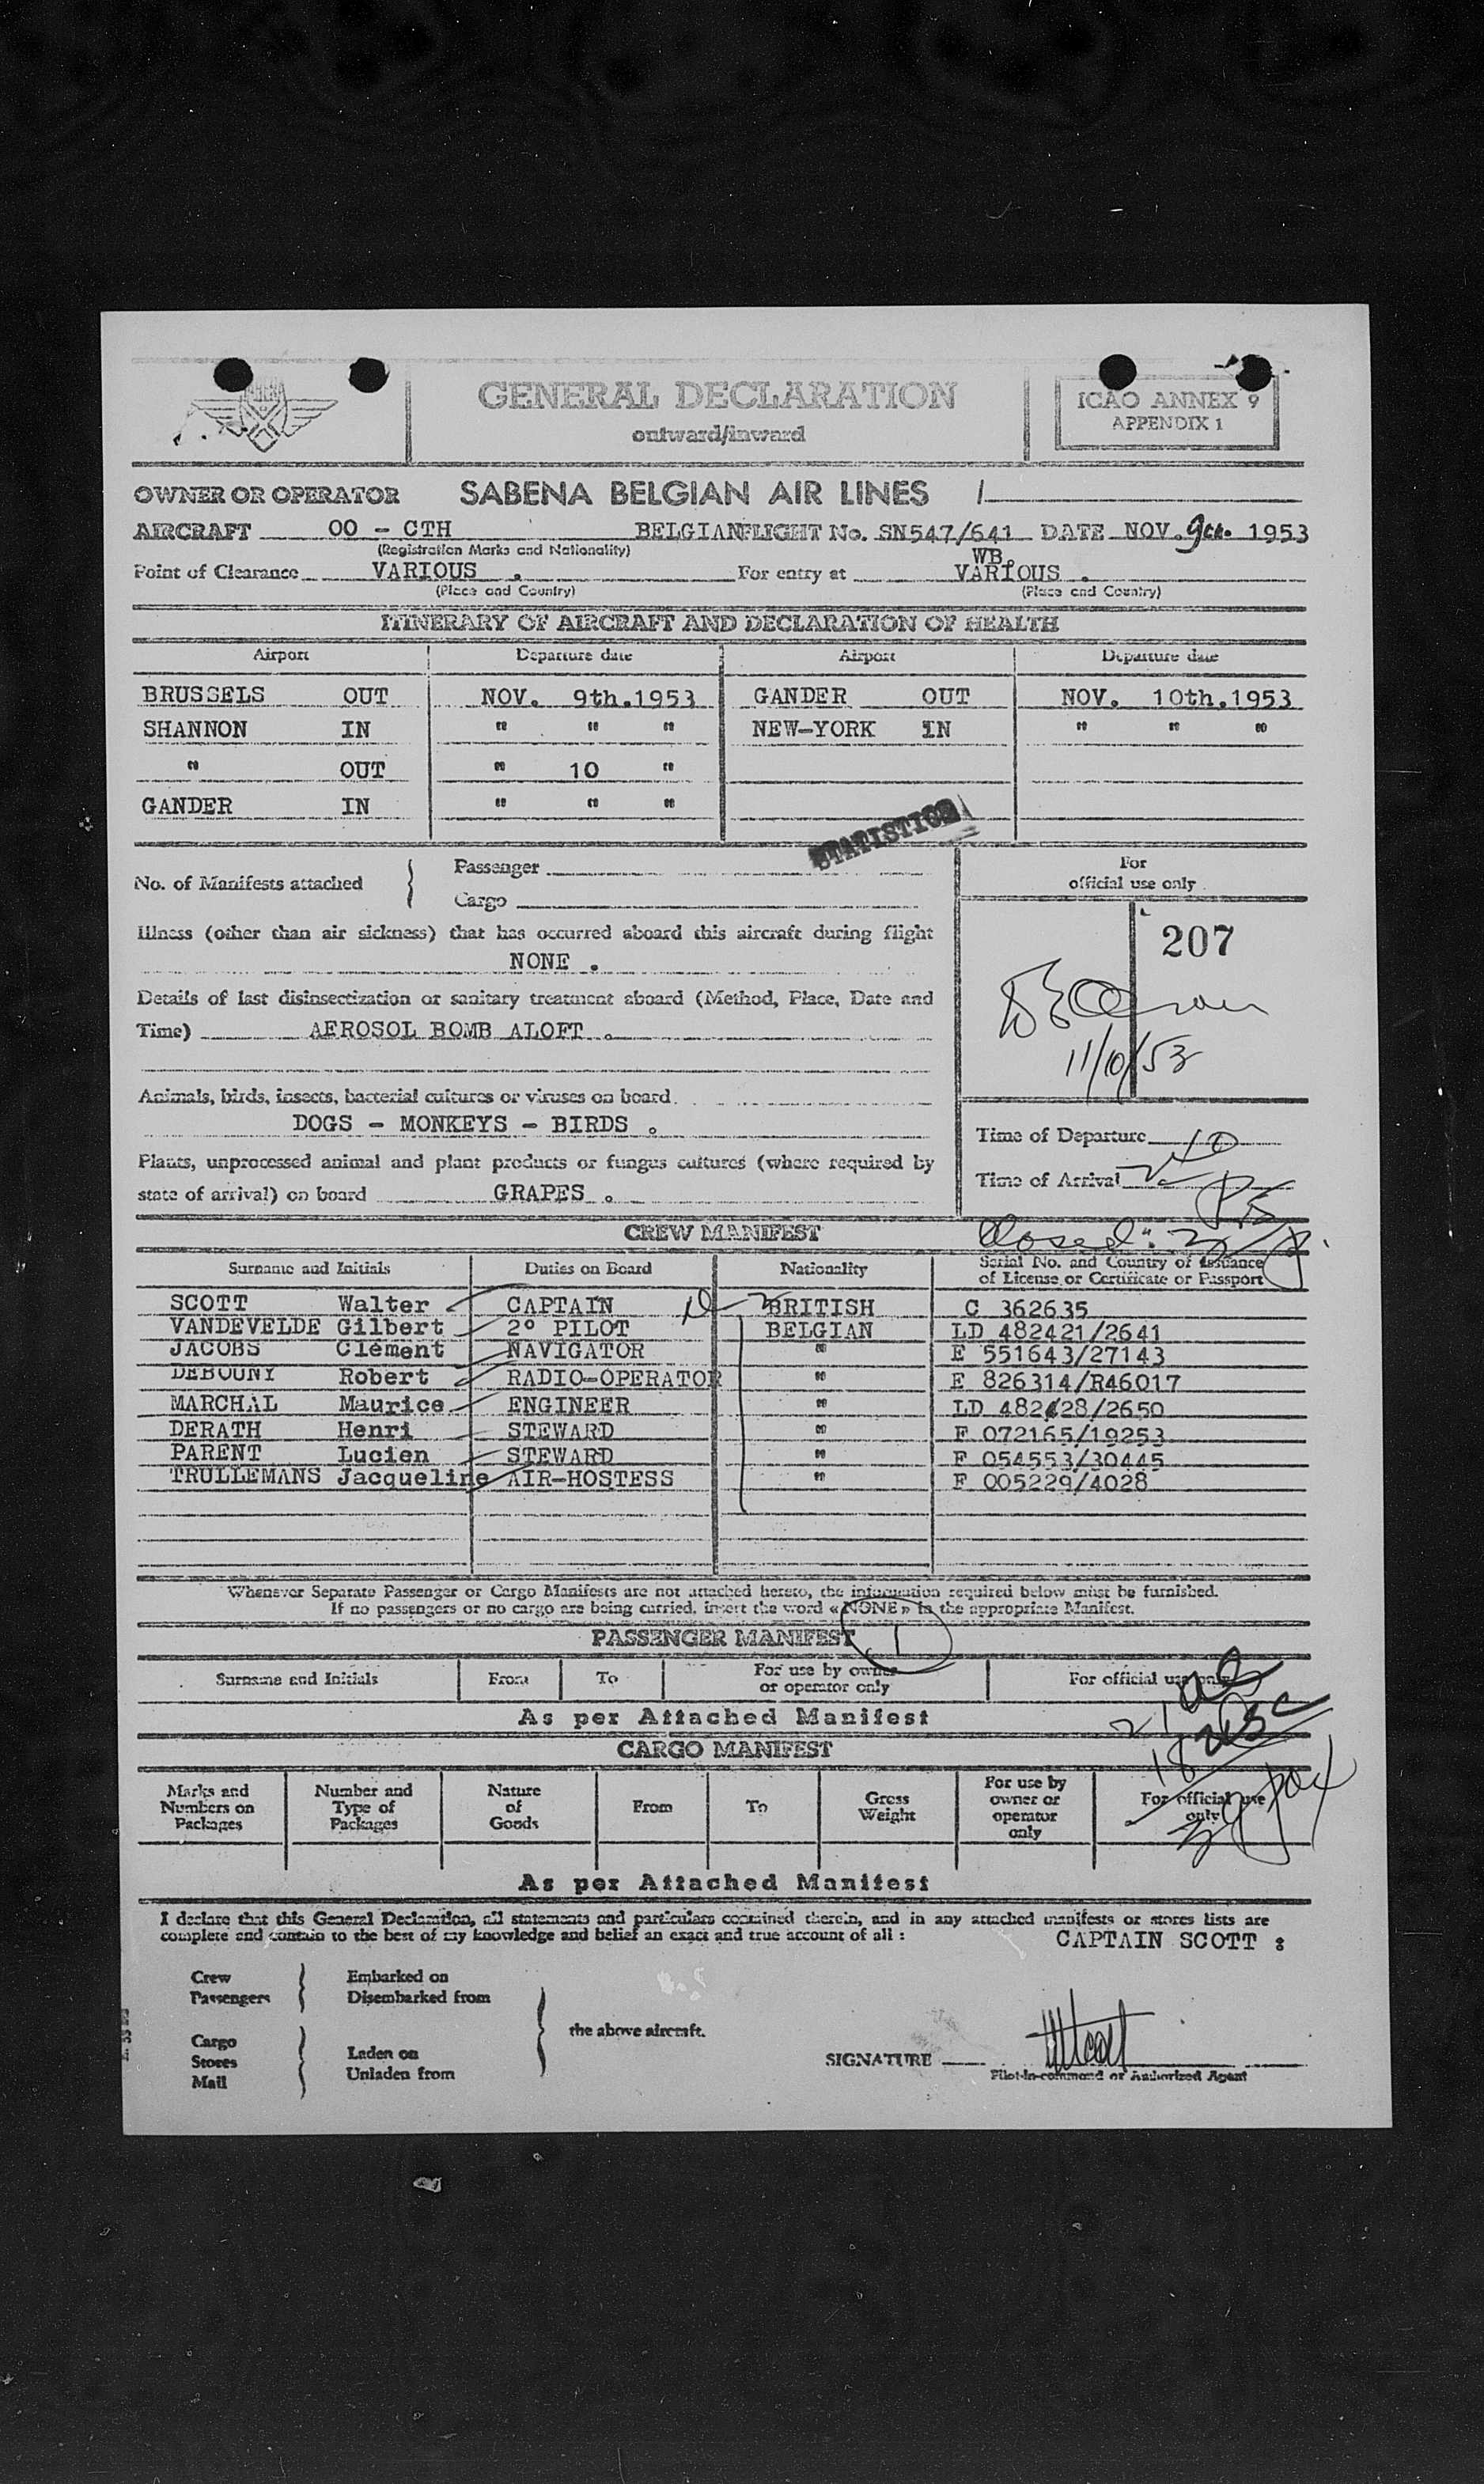 GENERAL DECLARATION
outward/inward
ICAO ANNEX 9
APPENDIX 1
OWNER OR OPERATOR SABENA BELGIAN AIR LINES /
AIRCRAFT OO - CTH BELGIAN FLIGHT No. SN547/641 DATE NOV. 9th. 1953
(Registration Marks and Nationality) WB.
Point of Clearance VARIOUS . For entry at VARIOUS .
(Place and Country) (Place and Country)
ITINERARY OF AIRCRAFT AND DECLARATION OF HEALTH
Airport Departure date Airport Departure date
BRUSSELS OUT NOV. 9th.1953 GANDER OUT NOV. 10th.1953
SHANNON IN " " " NEW-YORK IN " " "
" OUT " 10 "
GANDER IN " " "
STATISTICS
No. of Manifests attached { Passenger
Cargo
For
official use only
Illness (other than air sickness) that has occurred aboard this aircraft during flight
NONE .
207
Details of last disinsectization or sanitary treatment aboard (Method, Place, Date and
Time) AEROSOL BOMB ALOFT .
11/10/53
Animals, birds, insects, bacterial cultures or viruses on board
DOGS - MONKEYS - BIRDS .
Time of Departure
Plants, unprocessed animal and plant products or fungus cultures (where required by
state of arrival) on board GRAPES .
Time of Arrival
CREW MANIFEST
Closed
Surname and Initials Duties on Board Nationality Serial No. and Country of Issuance
of License or Certificate or Passport
SCOTT Walter CAPTAIN BRITISH C 362635
VANDEVELDE Gilbert 2° PILOT BELGIAN LD 482421/2641
JACOBS Clément NAVIGATOR " E 551643/27143
DEBOUNY Robert RADIO-OPERATOR " E 826314/R46017
MARCHAL Maurice ENGINEER " LD 482428/2650
DERATH Henri STEWARD " F 072165/19253
PARENT Lucien STEWARD " F 054553/30445
TRULLEMANS Jacqueline AIR-HOSTESS " F 005229/4028
Whenever Separate Passenger or Cargo Manifests are not attached hereto, the information required below must be furnished.
If no passengers or no cargo are being carried, insert the word « NONE » in the appropriate Manifest.
PASSENGER MANIFEST 1
Surname and Initials From To For use by owner
or operator only For official use only
As per Attached Manifest
CARGO MANIFEST
Marks and
Numbers on
Packages
Number and
Type of
Packages
Nature
of
Goods
From
To
Gross
Weight
For use by
owner or
operator
only
For official use
only
As per Attached Manifest
I declare that this General Declaration, all statements and particulars contained therein, and in any attached manifests or stores lists are
complete and contain to the best of my knowledge and belief an exact and true account of all :
CAPTAIN SCOTT :
Crew
Passengers
Embarked on
Disembarked from
the above aircraft.
Cargo
Stores
Mail
Laden on
Unladen from
SIGNATURE
Pilot-in-command or Authorized Agent